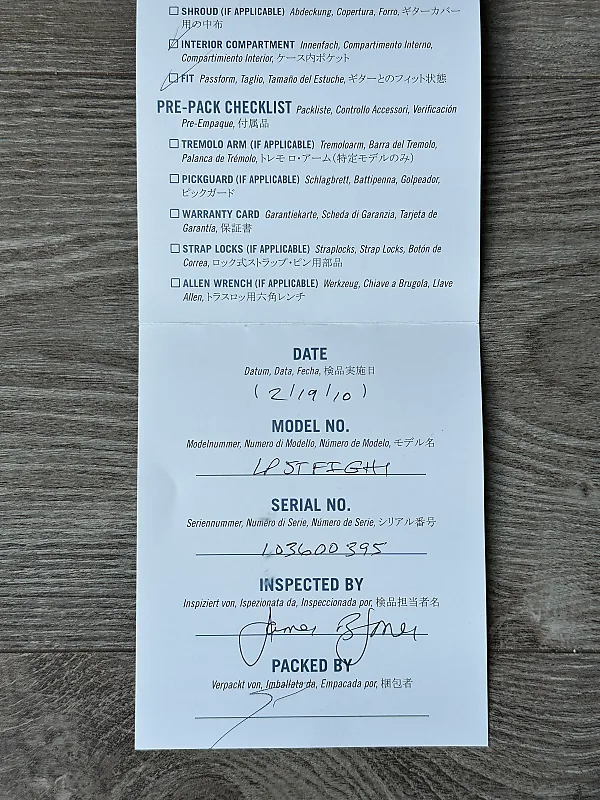 ☐ SHROUD (IF APPLICABLE) Abdeckung, Copertura, Forro, ギターカバー
用の中布
☐ INTERIOR COMPARTMENT Innenfach, Compartimento Interno,
Compartimiento Interior, ケース内ポケット
☐ FIT Passform, Taglio, Tamaño del Estuche, ギターとのフィット状態
PRE-PACK CHECKLIST Packliste, Controllo Accessori, Verificación
Pre-Empaque, 付属品
☐ TREMOLO ARM (IF APPLICABLE) Tremoloarm, Barra del Tremolo,
Palanca de Trémolo, トレモロ・アーム(特定モデルのみ)
☐ PICKGUARD (IF APPLICABLE) Schlagbrett, Battipenna, Golpeador,
ピックガード
☐ WARRANTY CARD Garantiekarte, Scheda di Garanzia, Tarjeta de
Garantía, 保証書
☐ STRAP LOCKS (IF APPLICABLE) Straplocks, Strap Locks, Botón de
Correa, ロック式ストラップ・ピン用部品
☐ ALLEN WRENCH (IF APPLICABLE) Werkzeug, Chiave a Brugola, Llave
Allen, トラスロッ用六角レンチ
DATE
Datum, Data, Fecha, 検品実施日
(2/19/10)
MODEL NO.
Modelnummer, Numero di Modello, Número de Modelo, モデル名
LPSTFIGH1
SERIAL NO.
Seriennummer, Numero di Serie, Número de Serie, シリアル番号
103600395
INSPECTED BY
Inspiziert von, Ispezionata da, Inspeccionada por, 検品担当者名
James B Jones
PACKED BY
Verpackt von, Imballata da, Empacada por, 梱包者